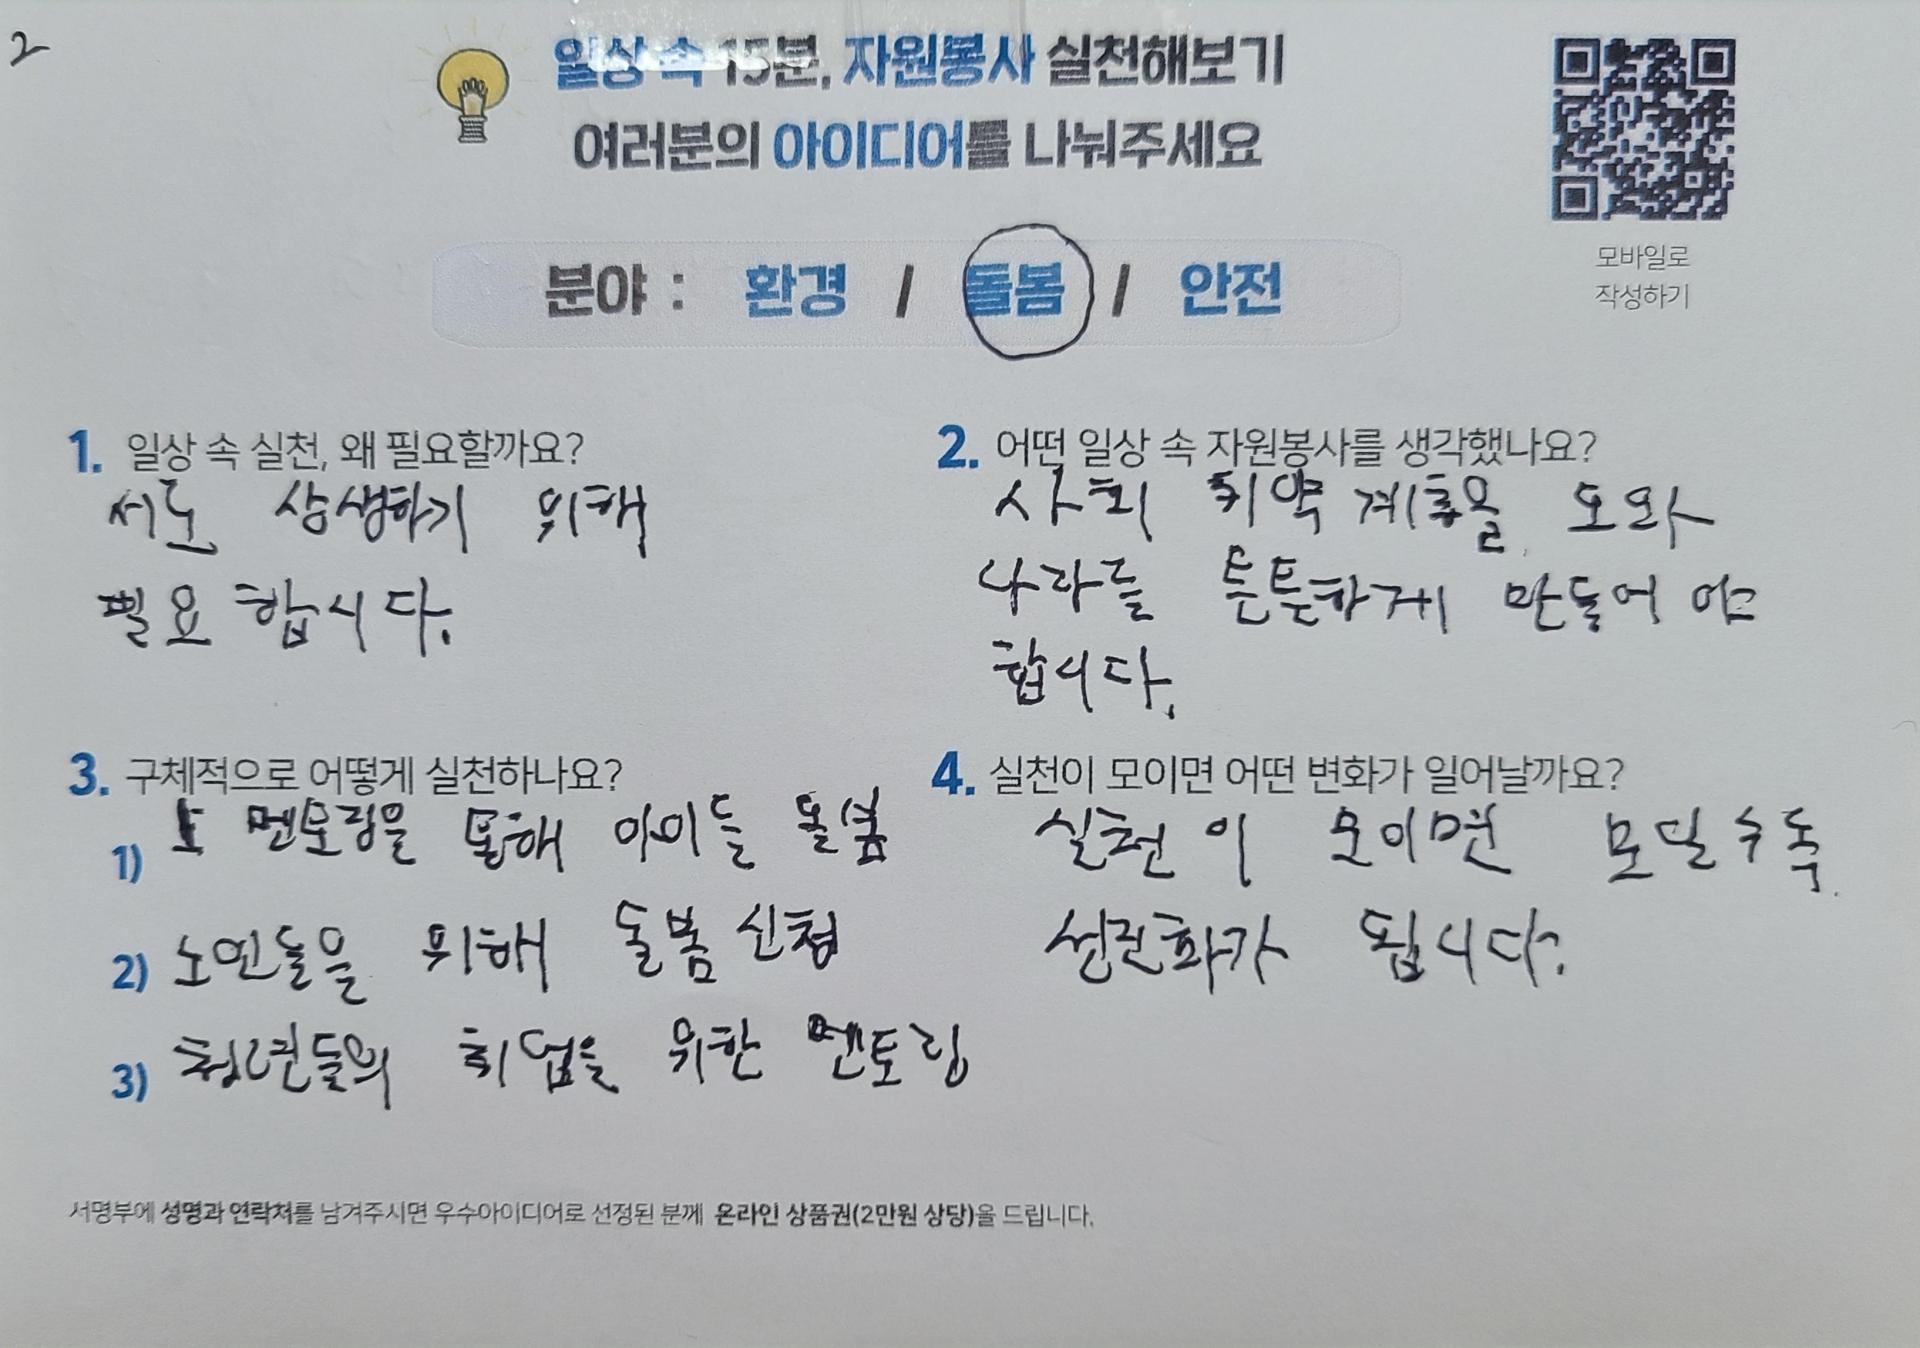 2
일상 속 15분, 자원봉사 실천해보기
여러분의 아이디어를 나눠주세요
모바일로
작성하기
분야 : 환경 / 돌봄 / 안전
1. 일상 속 실천, 왜 필요할까요?
서로 상생하기 위해
필요 합시다.
2. 어떤 일상 속 자원봉사를 생각했나요?
사회 취약 계층을 도와
나라를 튼튼하게 만들어 야
합니다.
3. 구체적으로 어떻게 실천하나요?
1) 멘토링을 통해 아이들 돌봄
2) 노인들을 위해 돌봄 신청
3) 청년들의 취업을 위한 멘토링
4. 실천이 모이면 어떤 변화가 일어날까요?
실천 이 모이면 모일 수록
선진화가 됩니다.
서명부에 성명과 연락처를 남겨주시면 우수아이디어로 선정된 분께 온라인 상품권(2만원 상당)을 드립니다.